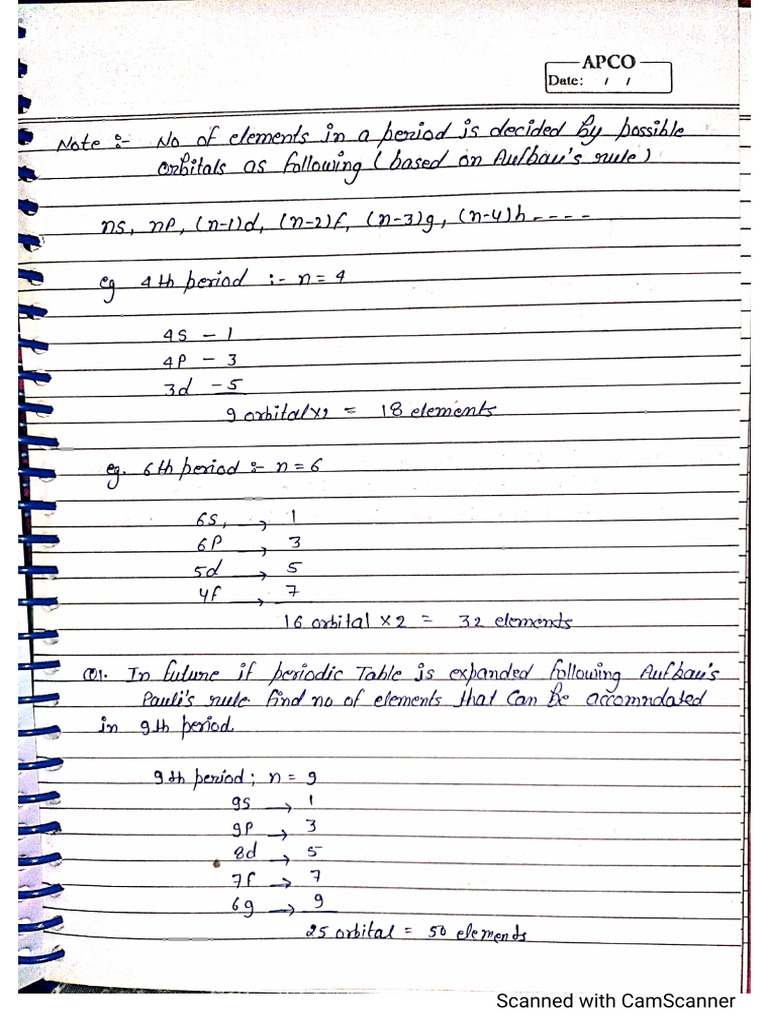 APCO
Date: / /
Note :- No of elements in a period is decided by possible
orbitals as following (based on Aufbau's rule)
ns, np, (n-1)d, (n-2)f, (n-3)g, (n-4)h ----
eg 4th period :- n = 4
4s - 1
4p - 3
3d - 5
9 orbital x2 = 18 elements
eg. 6th period :- n = 6
6s, → 1
6p → 3
5d → 5
4f → 7
16 orbital x 2 = 32 elements
Q1. In future if periodic Table is expanded following Aufbau's
Pauli's rule. find no of elements that can be accomndated
in 9th period.
9th period; n = 9
9s → 1
9p → 3
8d → 5
7f → 7
6g → 9
25 orbital = 50 elements
Scanned with CamScanner